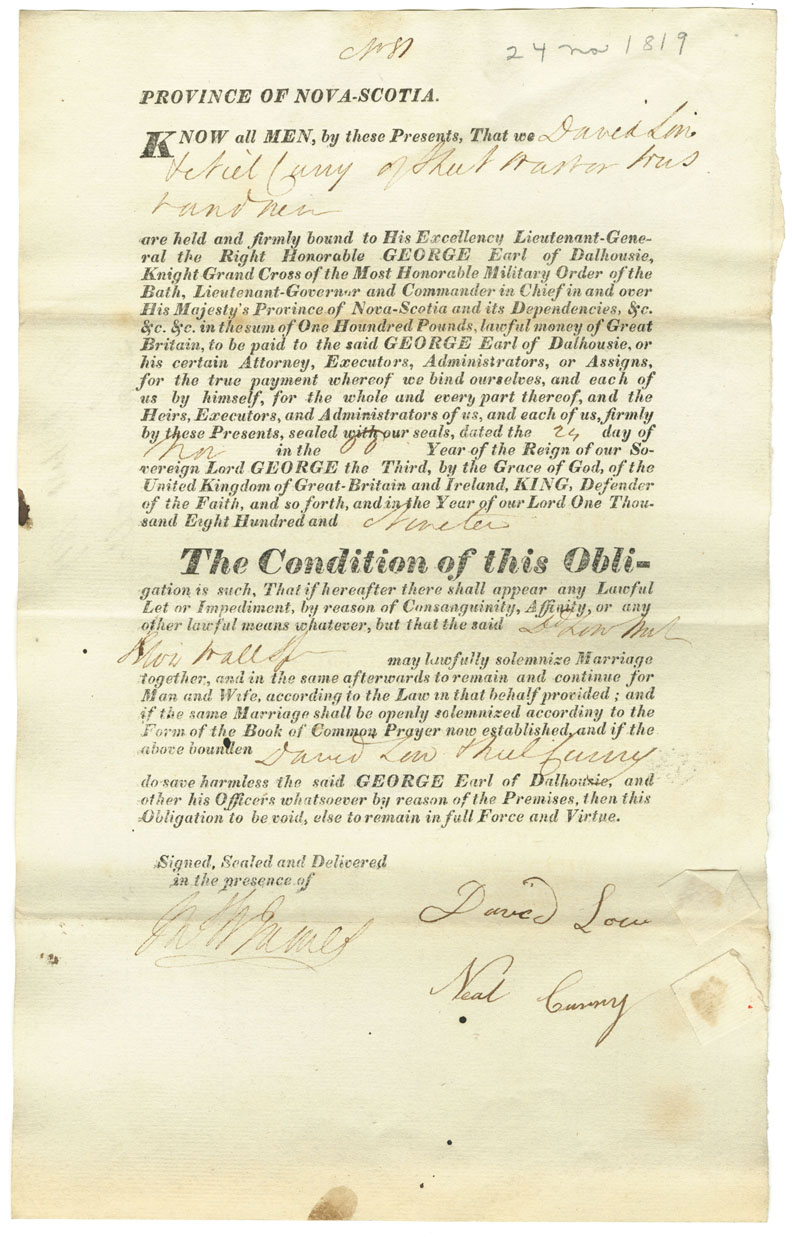 No 81
24 Nov 1819
PROVINCE OF NOVA-SCOTIA.
KNOW all MEN, by these Presents, That we David Low
& Neil Curry of Sheet Harbor Hus
bandmen
are held and firmly bound to His Excellency Lieutenant-Gene-
ral the Right Honorable GEORGE Earl of Dalhousie,
Knight Grand Cross of the Most Honorable Military Order of the
Bath, Lieutenant-Governor and Commander in Chief in and over
His Majesty's Province of Nova-Scotia and its Dependencies, &c.
&c. &c. in the sum of One Houndred Pounds, lawful money of Great
Britain, to be paid to the said GEORGE Earl of Dalhousie, or
his certain Attorney, Executors, Administrators, or Assigns,
for the true payment whereof we bind ourselves, and each of
us by himself, for the whole and every part thereof, and the
Heirs, Executors, and Administrators of us, and each of us, firmly
by these Presents, sealed with our seals, dated the 24 day of
Nov in the Year of the Reign of our So-
vereign Lord GEORGE the Third, by the Grace of God, of the
United Kingdom of Great-Britain and Ireland, KING, Defender
of the Faith, and so forth, and in the Year of our Lord One Thou-
sand Eight Hundred and Nineteen
The Condition of this Obli-
gation is such, That if hereafter there shall appear any Lawful
Let or Impediment, by reason of Consanguinity, Affinity, or any
other lawful means whatever, but that the said D Low and
may lawfully solemnize Marriage
together, and in the same afterwards to remain and continue for
Man and Wife, according to the Law in that behalf provided; and
if the same Marriage shall be openly solemnized accordiny to the
Form of the Book of Common Prayer now established, and if the
above bounden David Low & Neil Curry
do save harmless the said GEORGE Earl of Dalhousie, and
other his Officers whatsoever by reason of the Premises, then this
Obligation to be void, else to remain in full Force and Virtue.
Signed, Sealed and Delivered
in the presence of
David Low
Neal Curry